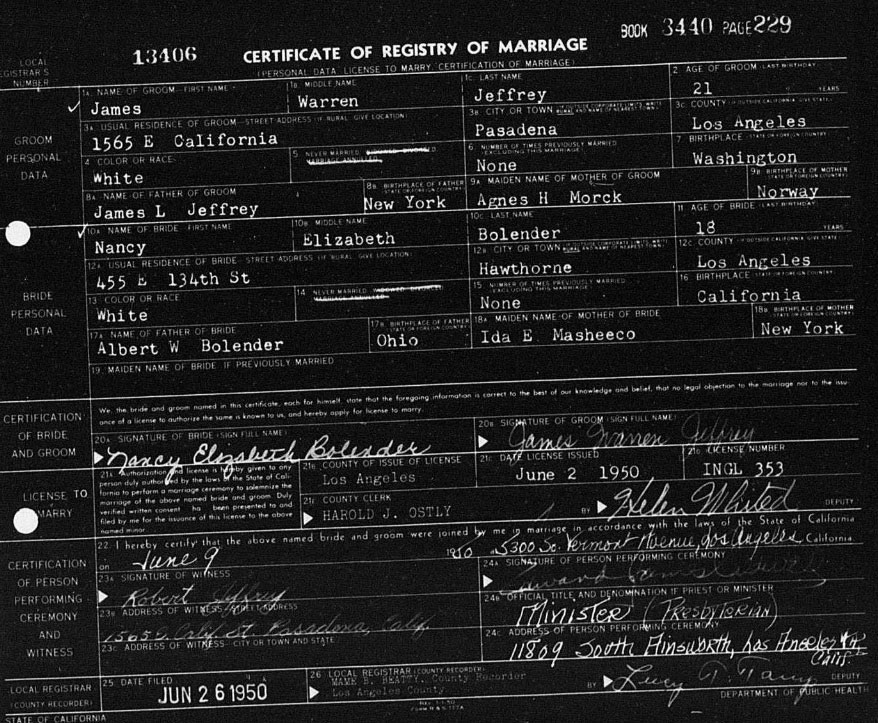 BOOK 3440 PAGE 229
13406 CERTIFICATE OF REGISTRY OF MARRIAGE
(PERSONAL DATA, LICENSE TO MARRY, CERTIFICATION OF MARRIAGE)
LOCAL REGISTRAR'S NUMBER
GROOM PERSONAL DATA
1A. NAME OF GROOM—FIRST NAME 1B. MIDDLE NAME 1C. LAST NAME 2. AGE OF GROOM (LAST BIRTHDAY)
James Warren Jeffrey 21 YEARS
3A. USUAL RESIDENCE OF GROOM—STREET ADDRESS (IF RURAL, GIVE LOCATION) 3B. CITY OR TOWN 3C. COUNTY
1565 E California Pasadena Los Angeles
4. COLOR OR RACE 5. NEVER MARRIED 6. NUMBER OF TIMES PREVIOUSLY MARRIED (EXCLUDING THIS MARRIAGE) 7. BIRTHPLACE (STATE OR FOREIGN COUNTRY)
White None Washington
8A. NAME OF FATHER OF GROOM 8B. BIRTHPLACE OF FATHER (STATE OR FOREIGN COUNTRY) 9A. MAIDEN NAME OF MOTHER OF GROOM 9B. BIRTHPLACE OF MOTHER (STATE OR FOREIGN COUNTRY)
James L Jeffrey New York Agnes H Morck Norway
BRIDE PERSONAL DATA
10A. NAME OF BRIDE—FIRST NAME 10B. MIDDLE NAME 10C. LAST NAME 11. AGE OF BRIDE (LAST BIRTHDAY)
Nancy Elizabeth Bolender 18 YEARS
12A. USUAL RESIDENCE OF BRIDE—STREET ADDRESS (IF RURAL, GIVE LOCATION) 12B. CITY OR TOWN 12C. COUNTY
455 E 134th St Hawthorne Los Angeles
13. COLOR OR RACE 14. NEVER MARRIED 15. NUMBER OF TIMES PREVIOUSLY MARRIED (EXCLUDING THIS MARRIAGE) 16. BIRTHPLACE (STATE OR FOREIGN COUNTRY)
White None California
17A. NAME OF FATHER OF BRIDE 17B. BIRTHPLACE OF FATHER (STATE OR FOREIGN COUNTRY) 18A. MAIDEN NAME OF MOTHER OF BRIDE 18B. BIRTHPLACE OF MOTHER (STATE OR FOREIGN COUNTRY)
Albert W Bolender Ohio Ida E Masheeco New York
19. MAIDEN NAME OF BRIDE IF PREVIOUSLY MARRIED
CERTIFICATION OF BRIDE AND GROOM
We, the bride and groom named in this certificate, each for himself, state that the foregoing information is correct to the best of our knowledge and belief, that no legal objection to the marriage nor to the issu-
ance of a license to authorize the same is known to us, and hereby apply for license to marry.
20A. SIGNATURE OF BRIDE (SIGN FULL NAME) 20B. SIGNATURE OF GROOM (SIGN FULL NAME)
Nancy Elizabeth Bolender James Warren Jeffrey
LICENSE TO MARRY
21A. Authorization and license is hereby given to any
person duly authorized by the laws of the State of Cali-
fornia to perform a marriage ceremony to solemnize the
marriage of the above named bride and groom. Duly
verified written consent has been presented to and
filed by me for the issuance of this license to the above
named minor.
21B. COUNTY OF ISSUE OF LICENSE 21C. DATE LICENSE ISSUED 21D. LICENSE NUMBER
Los Angeles June 2 1950 INGL 353
21E. COUNTY CLERK
HAROLD J. OSTLY BY Helen Whited DEPUTY
CERTIFICATION OF PERSON PERFORMING CEREMONY AND WITNESS
22. I hereby certify that the above named bride and groom were joined by me in marriage in accordance with the laws of the State of California
on June 9 1950 at 5300 So. Vermont Avenue, Los Angeles, California
23A. SIGNATURE OF WITNESS 24A. SIGNATURE OF PERSON PERFORMING CEREMONY
Robert Jeffrey
23B. ADDRESS OF WITNESS (STREET ADDRESS) 24B. OFFICIAL TITLE AND DENOMINATION IF PRIEST OR MINISTER
Calif St. Pasadena, Calif. Minister (Presbyterian)
23C. ADDRESS OF WITNESS—CITY OR TOWN AND STATE 24C. ADDRESS OF PERSON PERFORMING CEREMONY
11809 South Ainsworth, Los Angeles Calif.
LOCAL REGISTRAR (COUNTY RECORDER)
25. DATE FILED 26. LOCAL REGISTRAR (COUNTY RECORDER)
JUN 26 1950 MAME B. BEATTY, County Recorder
Los Angeles County BY Lucy T. DEPUTY
STATE OF CALIFORNIA DEPARTMENT OF PUBLIC HEALTH